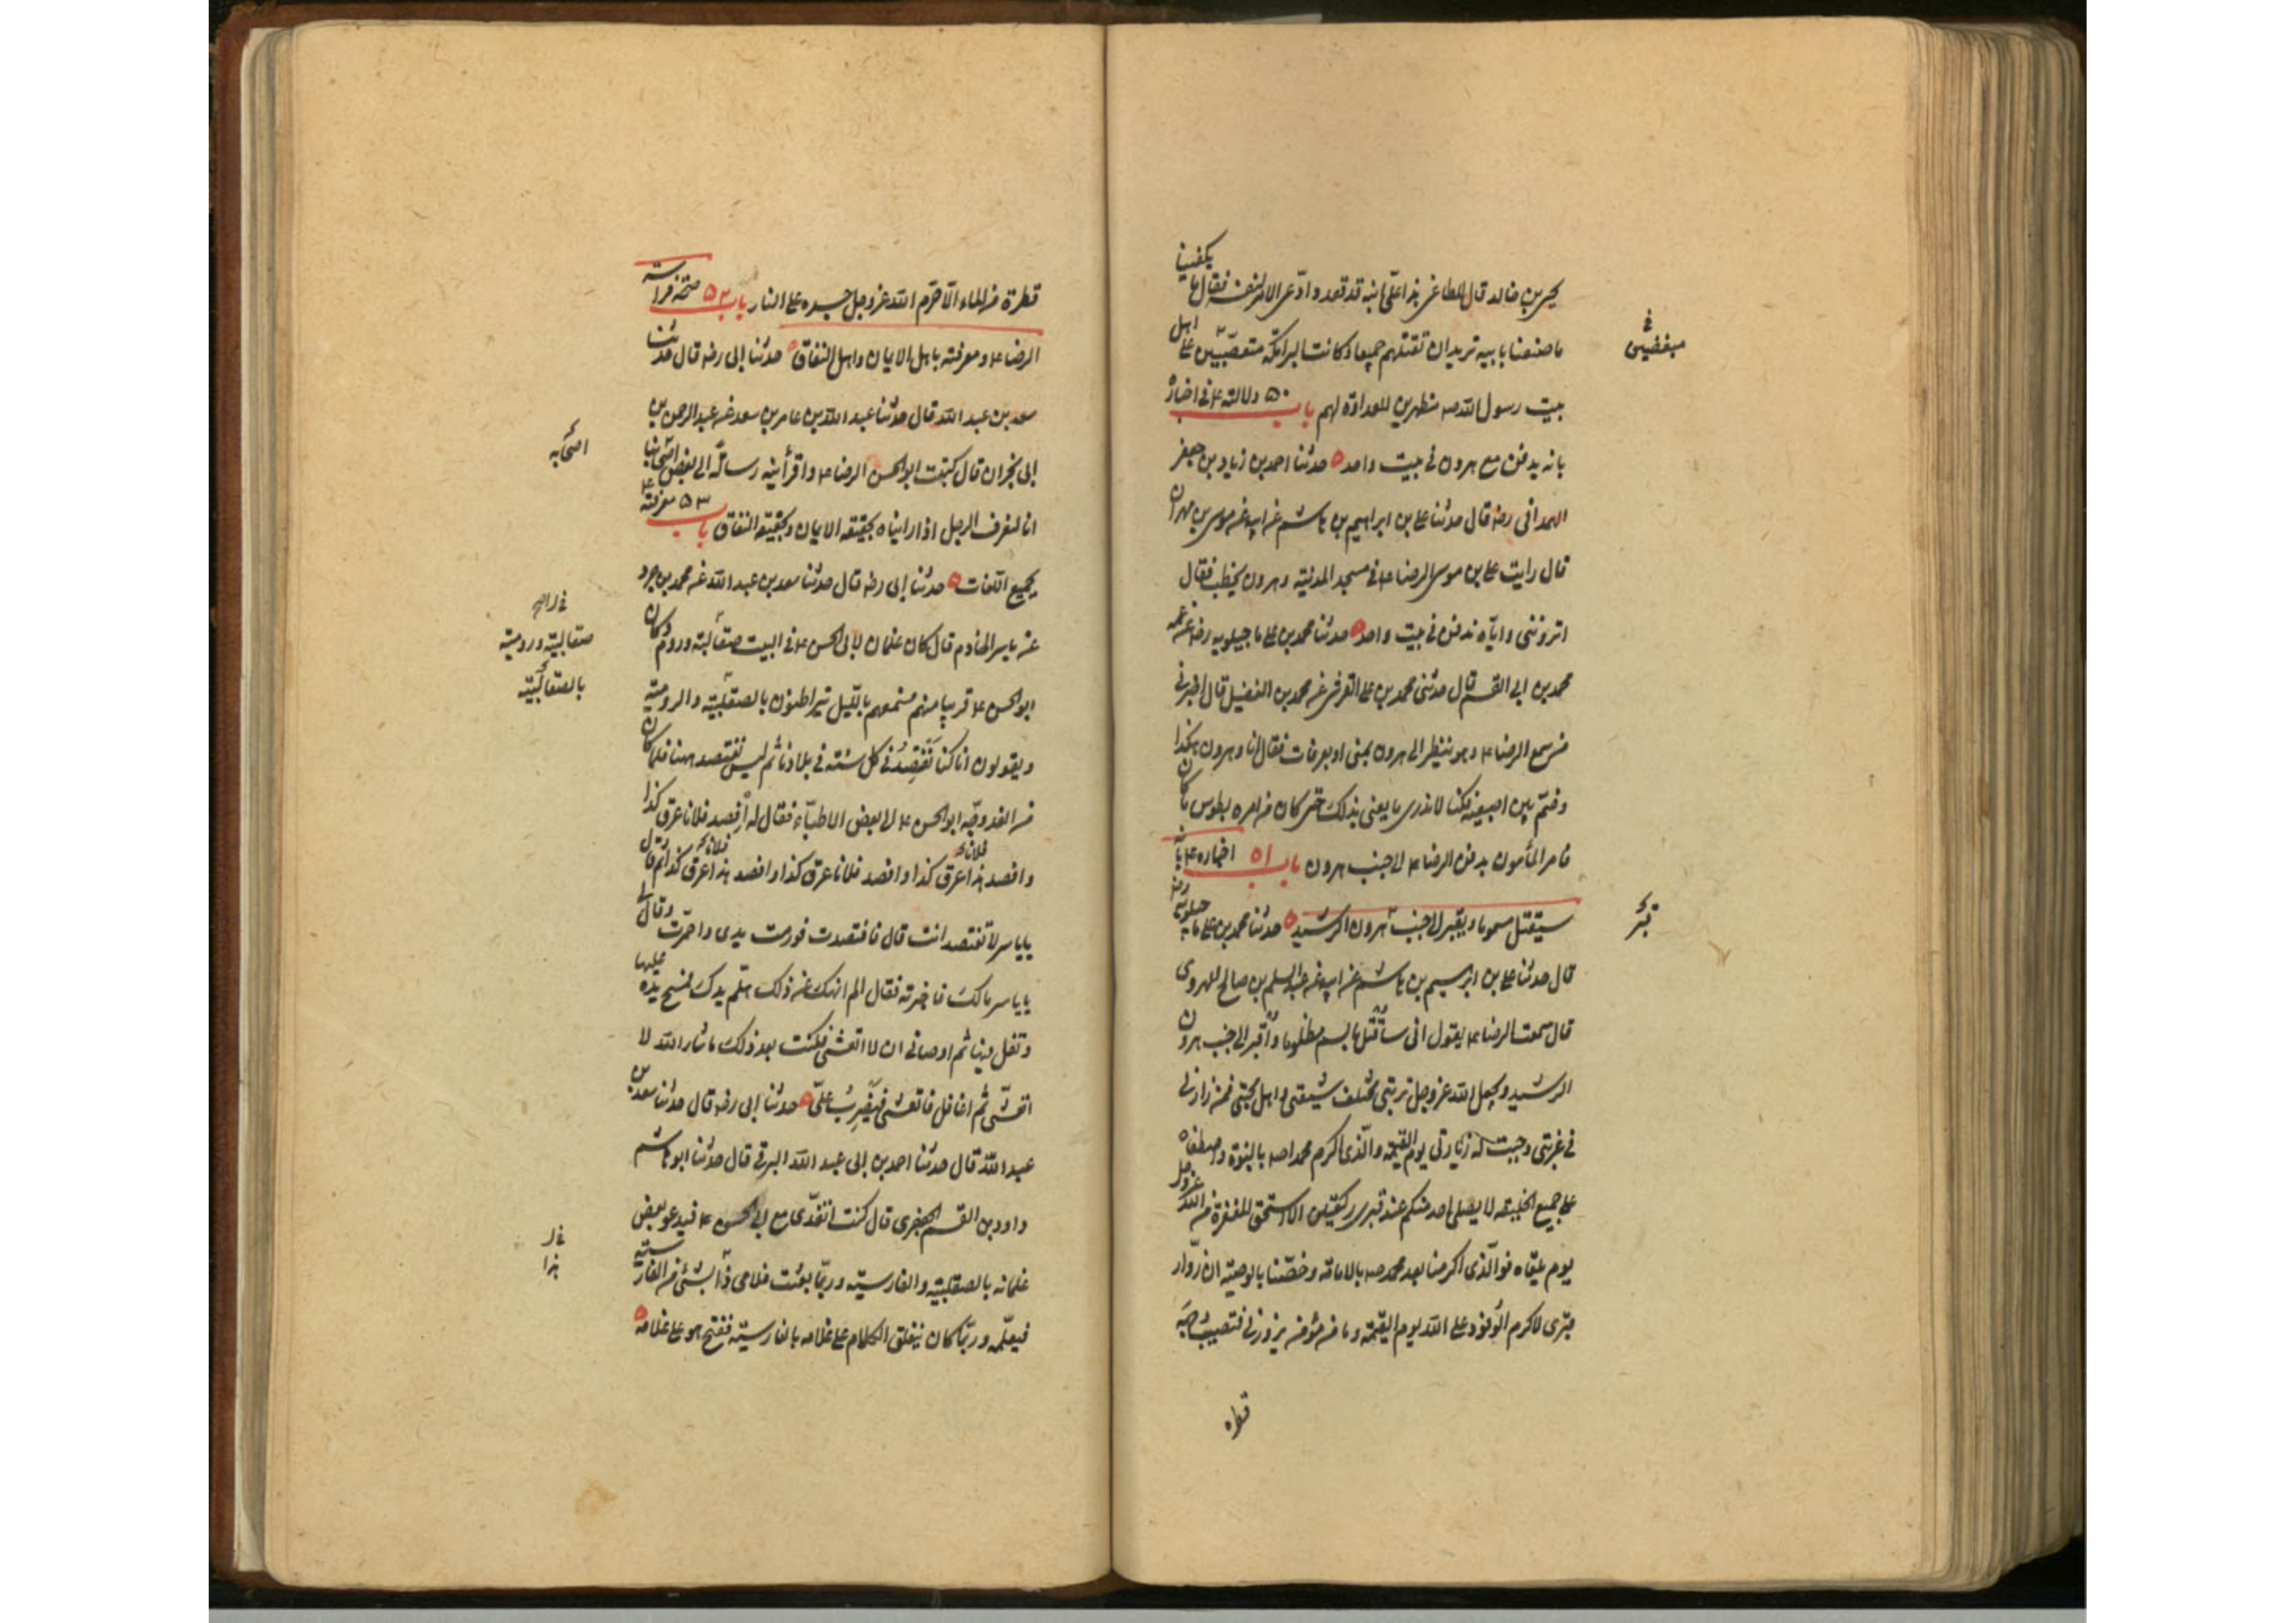 يحيى بن خالد قال للطاغى هذا على ابنه قد قعد وادّعى الامر لنفسه فقال ما يكفينا
ما صنعنا بابيه تريد ان تقتلهم جميعا وكانت البرامكة متعصّبين على اهل
في
مبغضين
بيت رسول الله صه مظهرين للعداوة لهم باب ٥٠ دلالته ع في اخباره
بانه يدفن مع هرون في بيت واحد ه حدثنا احمد بن زياد بن جعفر
الهمدانى رضه قال حدثنا على بن ابراهيم بن هاشم عن ابيه عن موسى بن مهران
قال رايت على بن موسى الرضا ع في مسجد المدينة وهرون يخطب فقال
اتروننى واياه ندفن في بيت واحد ه حدثنا محمد بن على ماجيلويه رضه عن عمه
محمد بن ابى القسم قال حدثنى محمد بن على القرشى عن محمد بن الفضيل قال اخبرنى
من سمع الرضا ع وهو ينظر الى هرون بمنى او بعرفات فقال انا وهرون هكذا
وضمّ بين اصبعيه فكنا لا ندرى ما يعنى بذلك حتى كان من امره بطوس ما كان
فامر المأمون بدفن الرضا ع الى جنب هرون باب ٥١ اخباره ع بانه
سيقتل مسموما ويقبر الى جنب هرون الرشيد ه حدثنا محمد بن على ماجيلويه رضه
قبر
قال حدثنا على بن ابرهيم بن هاشم عن ابيه عن عبد السلم بن صالح الهروى
قال سمعت الرضا ع يقول انى سأقتل بالسم مظلوما وأقبر الى جنب هرون
الرشيد ويجعل الله عز وجل تربتى مختلف شيعتى واهل محبتى فمن زارنى
في غربتى وجبت له زيارتى يوم القيمة والّذى اكرم محمدا صه بالنبوة واصطفاه
على جميع الخليقة لا يصلى احد منكم عند قبرى ركعتين الا استحق المغفرة من الله عز وجل
يوم يلقاه فو الّذى اكرمنا بعد محمد صه بالامامة وخصّنا بالوصية ان زوّار
قبرى لاكرم الوفود على الله يوم القيمة وما من مؤمن يزورنى فتصيب وجهه
قطرة من الماء الّا حرّم الله عز وجل جسده على النار باب ٥٢ صحة فراسة
الرضا ع ومعرفته باهل الايمان واهل النفاق ه حدثنا ابى رضه قال حدثنا
سعد بن عبد الله قال حدثنا عبد الله بن عامر بن سعد عن عبد الرحمن بن
ابى نجران قال كتبت ابو الحسن الرضا ع واقرأنيه رسالة الى بعض اصحابنا
اصحابه
انا لنعرف الرجل اذا رايناه بحقيقة الايمان وبحقيقة النفاق باب ٥٣ معرفته ع
بجميع اللغات ه حدثنا ابى رضه قال حدثنا سعد بن عبد الله عن محمد بن جزك
عن ياسر الخادم قال كان غلمان لابى الحسن ع في البيت صقالبة وروم وكان
صقالبية ورومية
ابو الحسن ع قريبا منهم فسمعهم بالليل يتراطنون بالصقلبية والرومية
بالصقالبية
ويقولون انا كنا نفتصد في كل سنة في بلادنا ثم ليس نفتصد ههنا فلما كان
من الغد وجّه ابو الحسن ع الى بعض الاطبّاء فقال له افصد فلانا عرق كذا
وافصد هذا عرق كذا وافصد فلانا عرق كذا وافصد هذا عرق كذا ثم قال
فلانا فلانا
يا ياسر لا تفتصد انت قال فافتصدت فورمت يدى واحمرّت وقال لى
يا ياسر مالك فاخبرته فقال الم انهك عن ذلك هلمّ يدك فمسح يده عليها
وتفل فيها ثم اوصانى ان لا اتعشى فكنت بعد ذلك ما شاء الله لا
اتعشّى ثم اغافل فاتعشى فيضرب علىّ ه حدثنا ابى رضه قال حدثنا سعد بن
عبد الله قال حدثنا احمد بن ابى عبد الله البرقى قال حدثنا ابو هاشم
داود بن القسم الجعفرى قال كنت اتغدّى مع ابى الحسن ع فيدعو بعض
غلمانه بالصقلبية والفارسيّة وربّما بعثت غلامى ذا بشئ من الفارسية
هذا
فيعلّمه وربّما كان ينغلق الكلام على غلامه بالفارسيّة فيفتح هو على غلامه ه